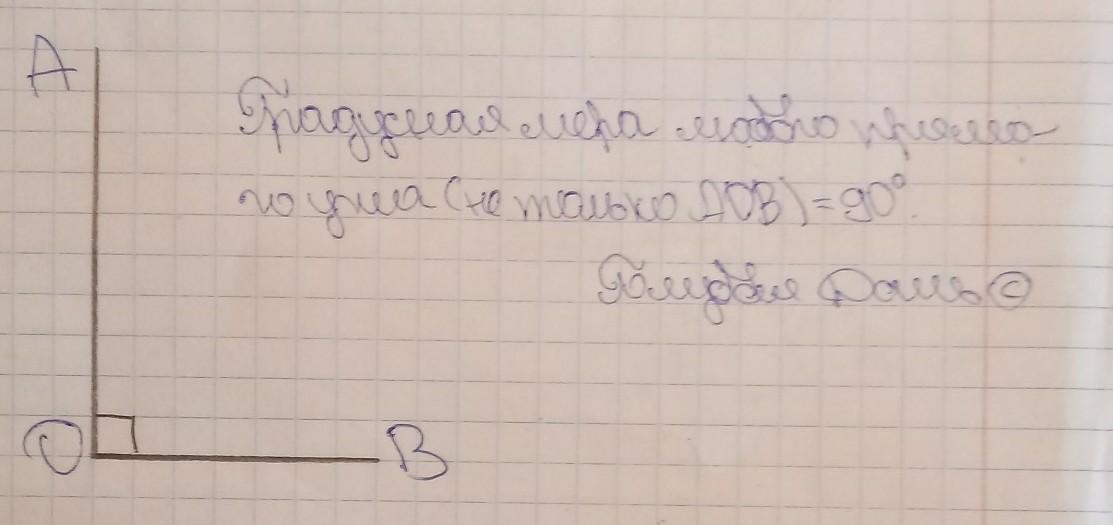 A
Градусная мера любого прямо-
го угла (не только AOB) = 90°.
O
B